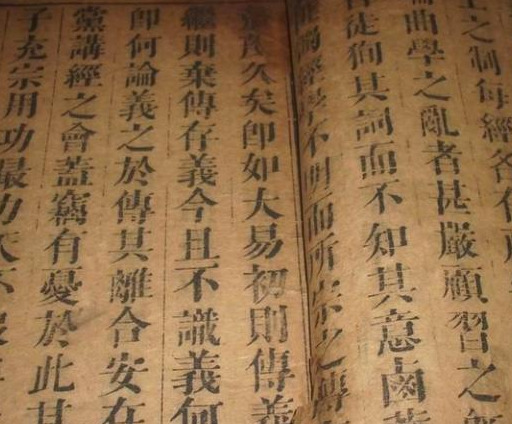 士之制每經各
曲學之亂者甚嚴顧習之
者徒狥其詞而不知其意鹵
經學不明而所宗之傳
久矣卽如大易初則傳義
繼則棄傳存義今且不識義何
卽何論義之於傳其離合安在
黨講經之會蓋竊有憂於此甘
子充宗用功最力